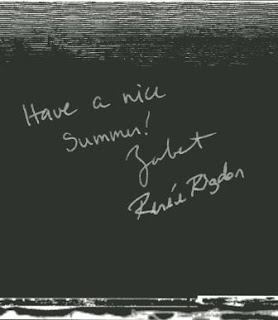 Have a nice
Summer!
Zabet
Renée Rigdon